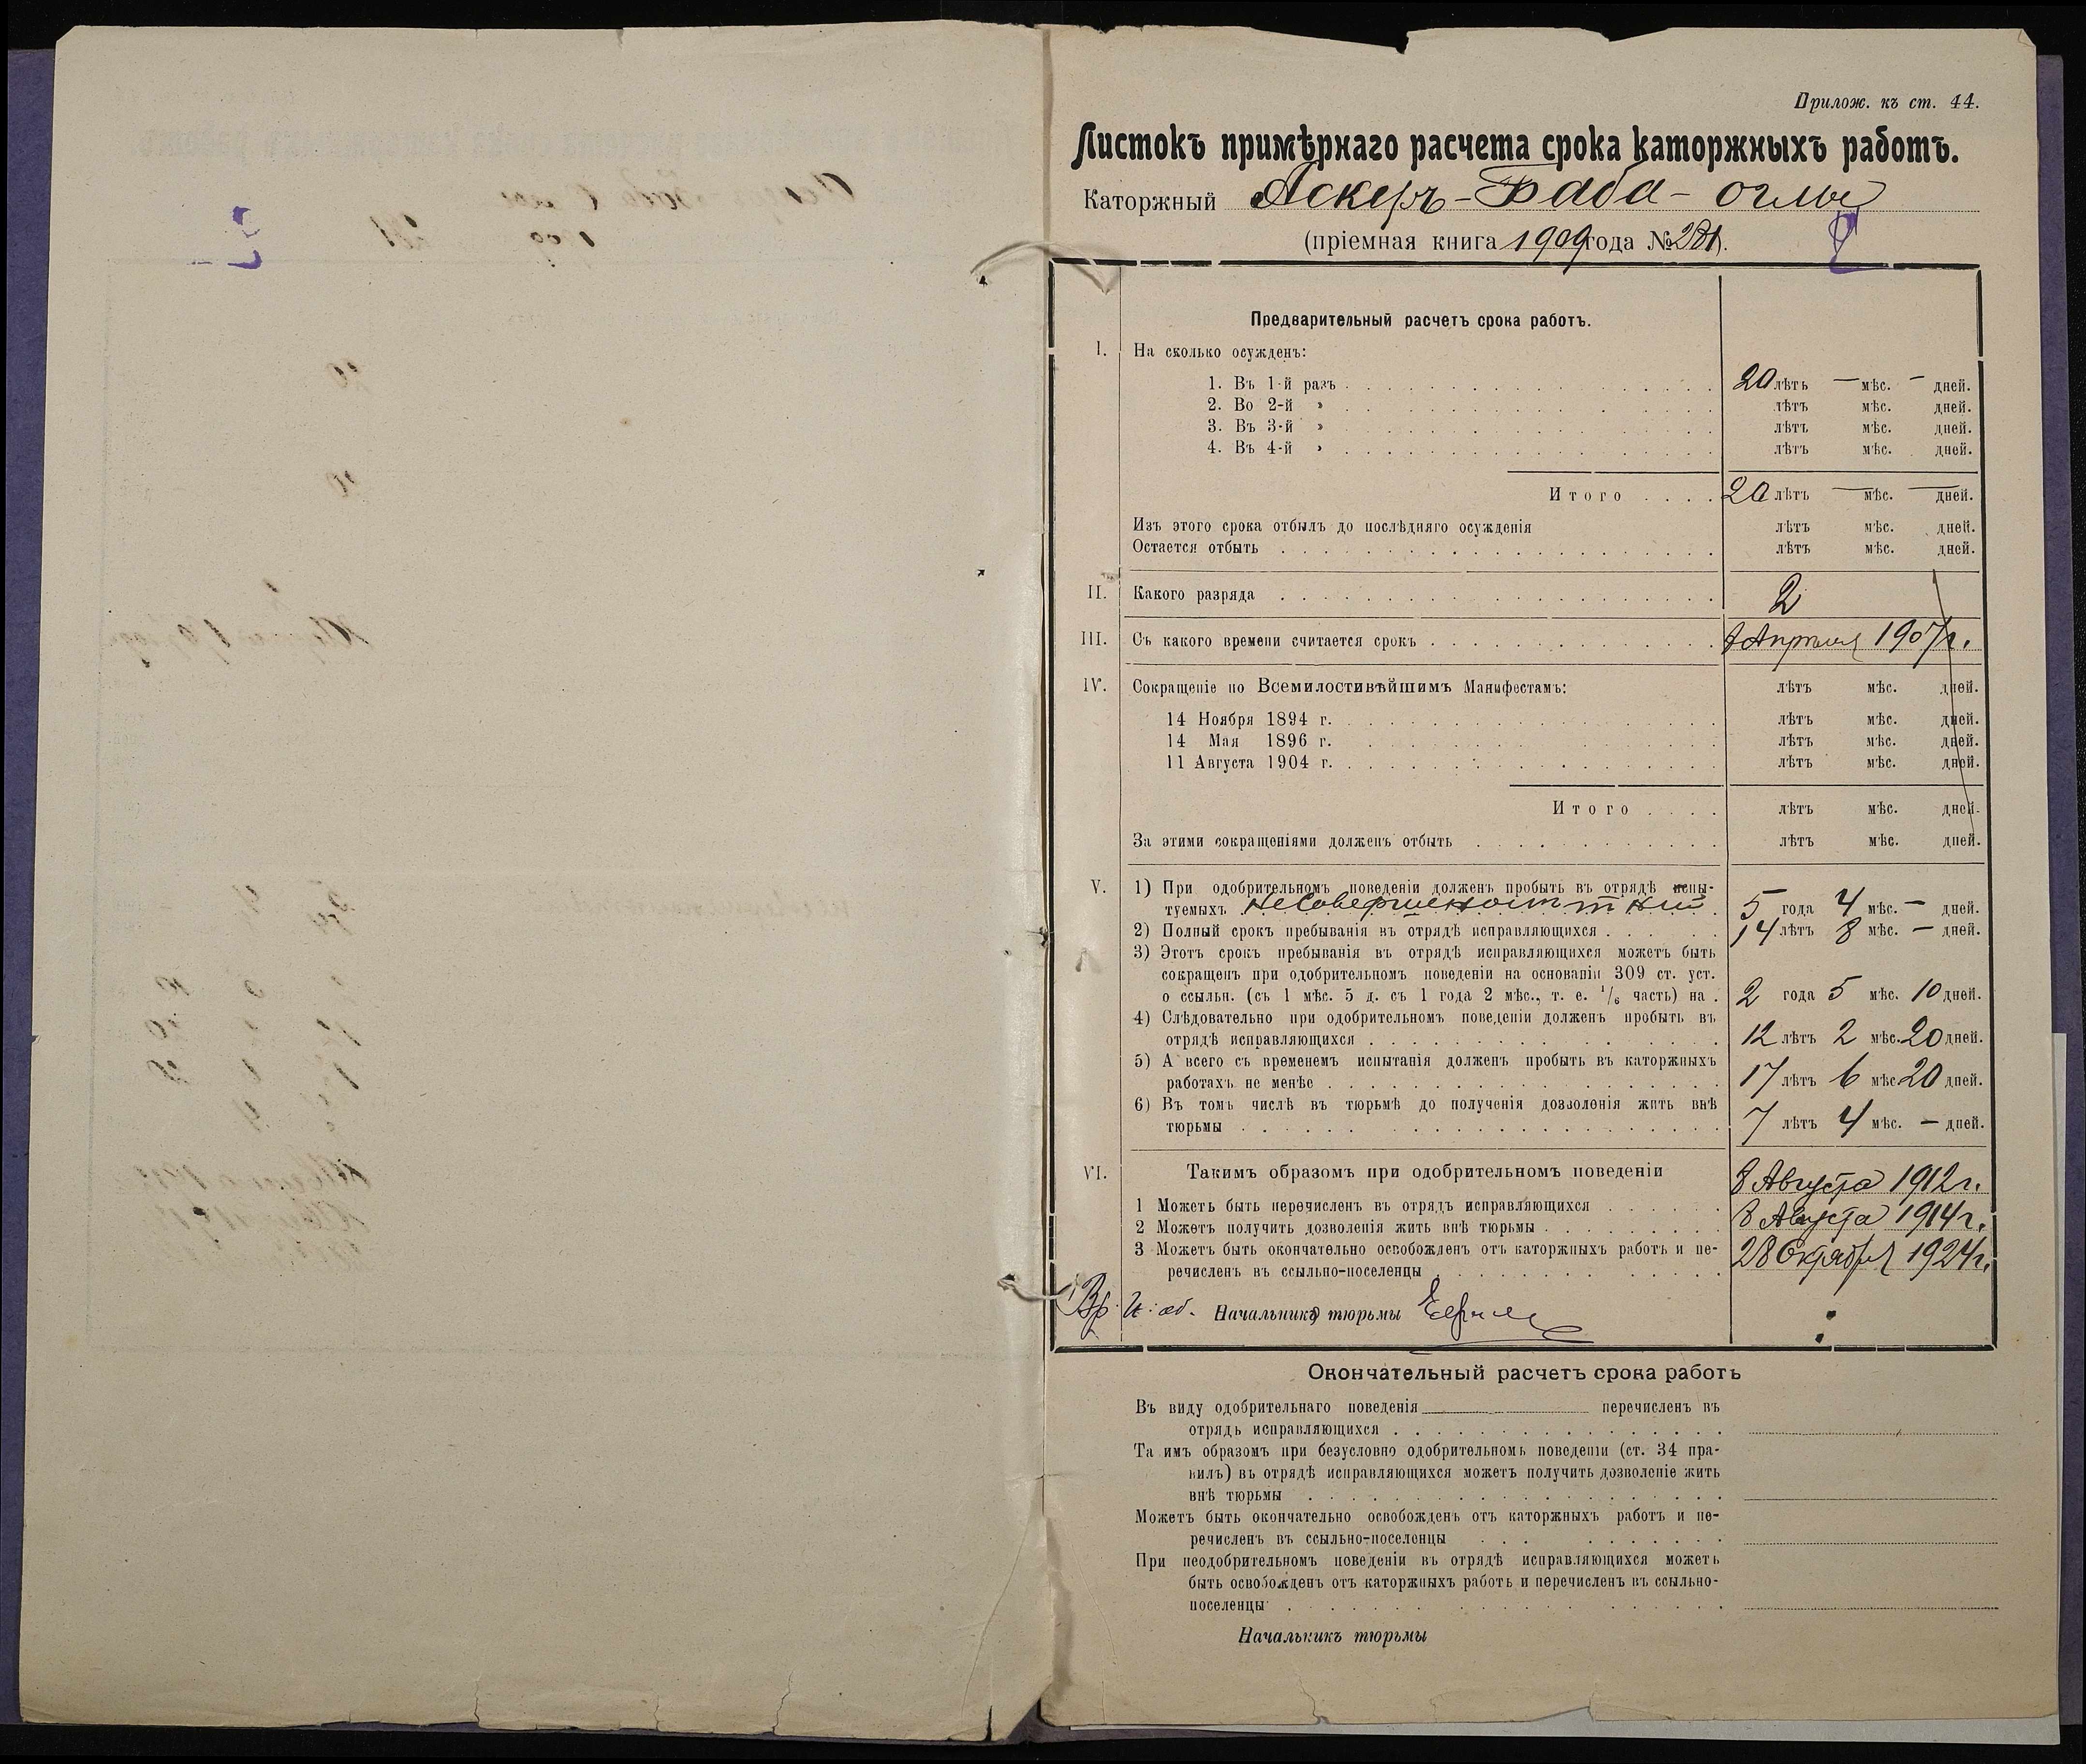 Прилож. къ ст. 44.
Листокъ примѣрнаго расчета срока каторжныхъ работъ.
Каторжный Аскеръ-Баба-оглы
(пріемная книга 1909 года № 281).
Предварительный расчетъ срока работъ.
I. На сколько осужденъ:
1. Въ 1-й разъ . . . 20 лѣтъ — мѣс. — дней.
2. Во 2-й » . . . лѣтъ мѣс. дней.
3. Въ 3-й » . . . лѣтъ мѣс. дней.
4. Въ 4-й » . . . лѣтъ мѣс. дней.
Итого . . . . 20 лѣтъ — мѣс. — дней.
Изъ этого срока отбылъ до послѣдняго осужденія лѣтъ мѣс. дней.
Остается отбыть . . . лѣтъ мѣс. дней.
II. Какого разряда . . . 2
III. Съ какого времени считается срокъ . . . 8 Апрѣля 1907 г.
IV. Сокращеніе по Всемилостивѣйшимъ Манифестамъ: лѣтъ мѣс. дней.
14 Ноября 1894 г. . . . лѣтъ мѣс. дней.
14 Мая 1896 г. . . . лѣтъ мѣс. дней.
11 Августа 1904 г. . . . лѣтъ мѣс. дней.
Итого . . . . лѣтъ мѣс. дней.
За этими сокращеніями долженъ отбыть . . . лѣтъ мѣс. дней.
V. 1) При одобрительномъ поведеніи долженъ пробыть въ отрядѣ испы-
туемыхъ несовершеннолѣтній . 5 года 4 мѣс. — дней.
2) Полный срокъ пребыванія въ отрядѣ исправляющихся . . . 14 лѣтъ 8 мѣс. — дней.
3) Этотъ срокъ пребыванія въ отрядѣ исправляющихся можетъ быть
сокращенъ при одобрительномъ поведеніи на основаніи 309 ст. уст.
о ссыльн. (съ 1 мѣс. 5 д. съ 1 года 2 мѣс., т. е. 1/6 часть) на . 2 года 5 мѣс. 10 дней.
4) Слѣдовательно при одобрительномъ поведеніи долженъ пробыть въ
отрядѣ исправляющихся . . . 12 лѣтъ 2 мѣс. 20 дней.
5) А всего съ временемъ испытанія долженъ пробыть въ каторжныхъ
работахъ не менѣе . . . 17 лѣтъ 6 мѣс. 20 дней.
6) Въ томъ числѣ въ тюрьмѣ до полученія дозволенія жить внѣ
тюрьмы . . . 7 лѣтъ 4 мѣс. — дней.
VI. Такимъ образомъ при одобрительномъ поведеніи
1 Можетъ быть перечисленъ въ отрядъ исправляющихся . . . 8 Августа 1912 г.
2 Можетъ получить дозволенія жить внѣ тюрьмы . . . 8 Августа 1914 г.
3 Можетъ быть окончательно освобожденъ отъ каторжныхъ работъ и пе-
речисленъ въ ссыльно-поселенцы . . . 28 Октября 1924 г.
Вр. И. об. Начальника тюрьмы
Окончательный расчетъ срока работъ
Въ виду одобрительнаго поведенія перечисленъ въ
отрядъ исправляющихся . . .
Такимъ образомъ при безусловно одобрительномъ поведеніи (ст. 34 пра-
вилъ) въ отрядѣ исправляющихся можетъ получить дозволеніе жить
внѣ тюрьмы . . .
Можетъ быть окончательно освобожденъ отъ каторжныхъ работъ и пе-
речисленъ въ ссыльно-поселенцы . . .
При неодобрительномъ поведеніи въ отрядѣ исправляющихся можетъ
быть освобожденъ отъ каторжныхъ работъ и перечисленъ въ ссыльно-
поселенцы . . .
Начальникъ тюрьмы